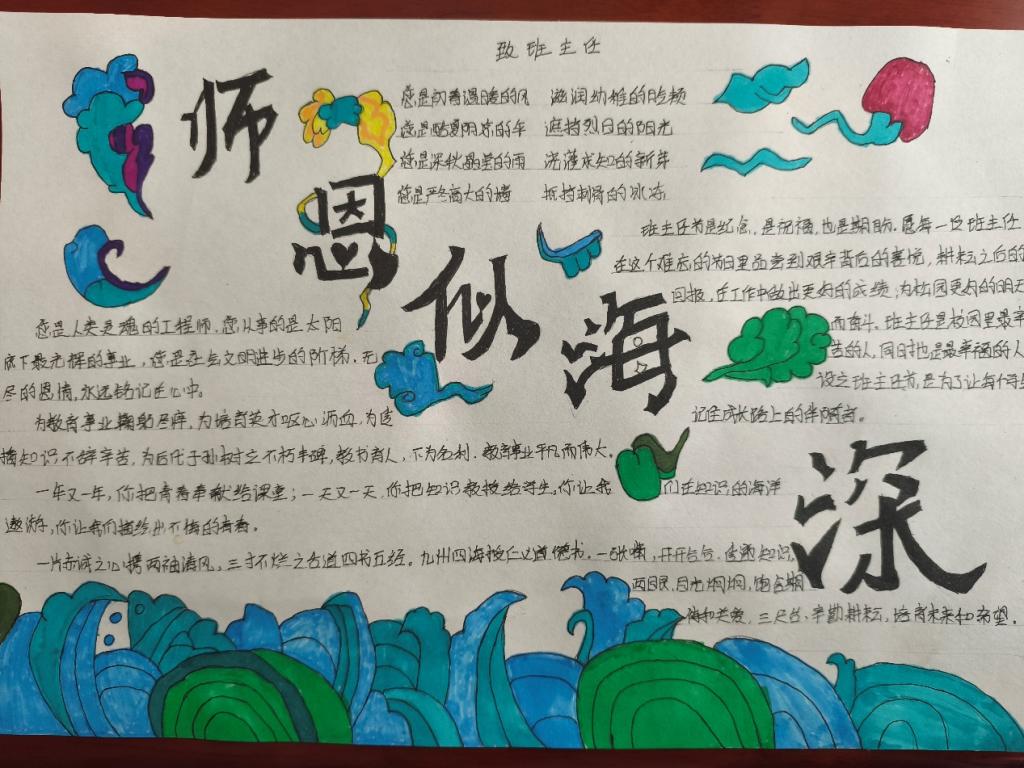 致班主任
师恩似海深
您是初春温暖的风 滋润幼稚的脸颊
您是酷夏阴凉的伞 遮挡烈日的阳光
您是深秋晶莹的雨 浇灌求知的新芽
您是严冬高大的墙 抵挡刺骨的冰冻
班主任节是纪念,是祝福,也是期盼.愿每一位班主任
在这个难忘的节日里品尝到艰辛背后的喜悦,耕耘之后的
回报,在工作中做出更好的成绩,为校园更好的明天
而奋斗.班主任是校园里最辛
苦的人,同时也是最幸福的人
设立班主任节,是为了让每个学生
记住成长路上的伴随者。
您是人类灵魂的工程师,您从事的是太阳
底下最光辉的事业,您是社会文明进步的阶梯.无
尽的恩情,永远铭记在心中。
为教育事业鞠躬尽瘁,为培育英才呕心沥血,为传
播知识不辞辛苦,为后代子孙树立不朽丰碑,教书育人,不为名利.教育事业平凡而伟大。
一年又一年,你把青春奉献给课堂;一天又一天,你把知识教授给学生.你让我们在知识的海洋
遨游,你让我们描绘出不悔的青春。
一片赤诚之心携两袖清风,三寸不烂之舌道四书五经。九州四海授仁义道德书.一张嘴,开开合合.传递知识,
两只眼,目光炯炯,饱含期
待和关爱,三尺台,辛勤耕耘,培育未来和希望.